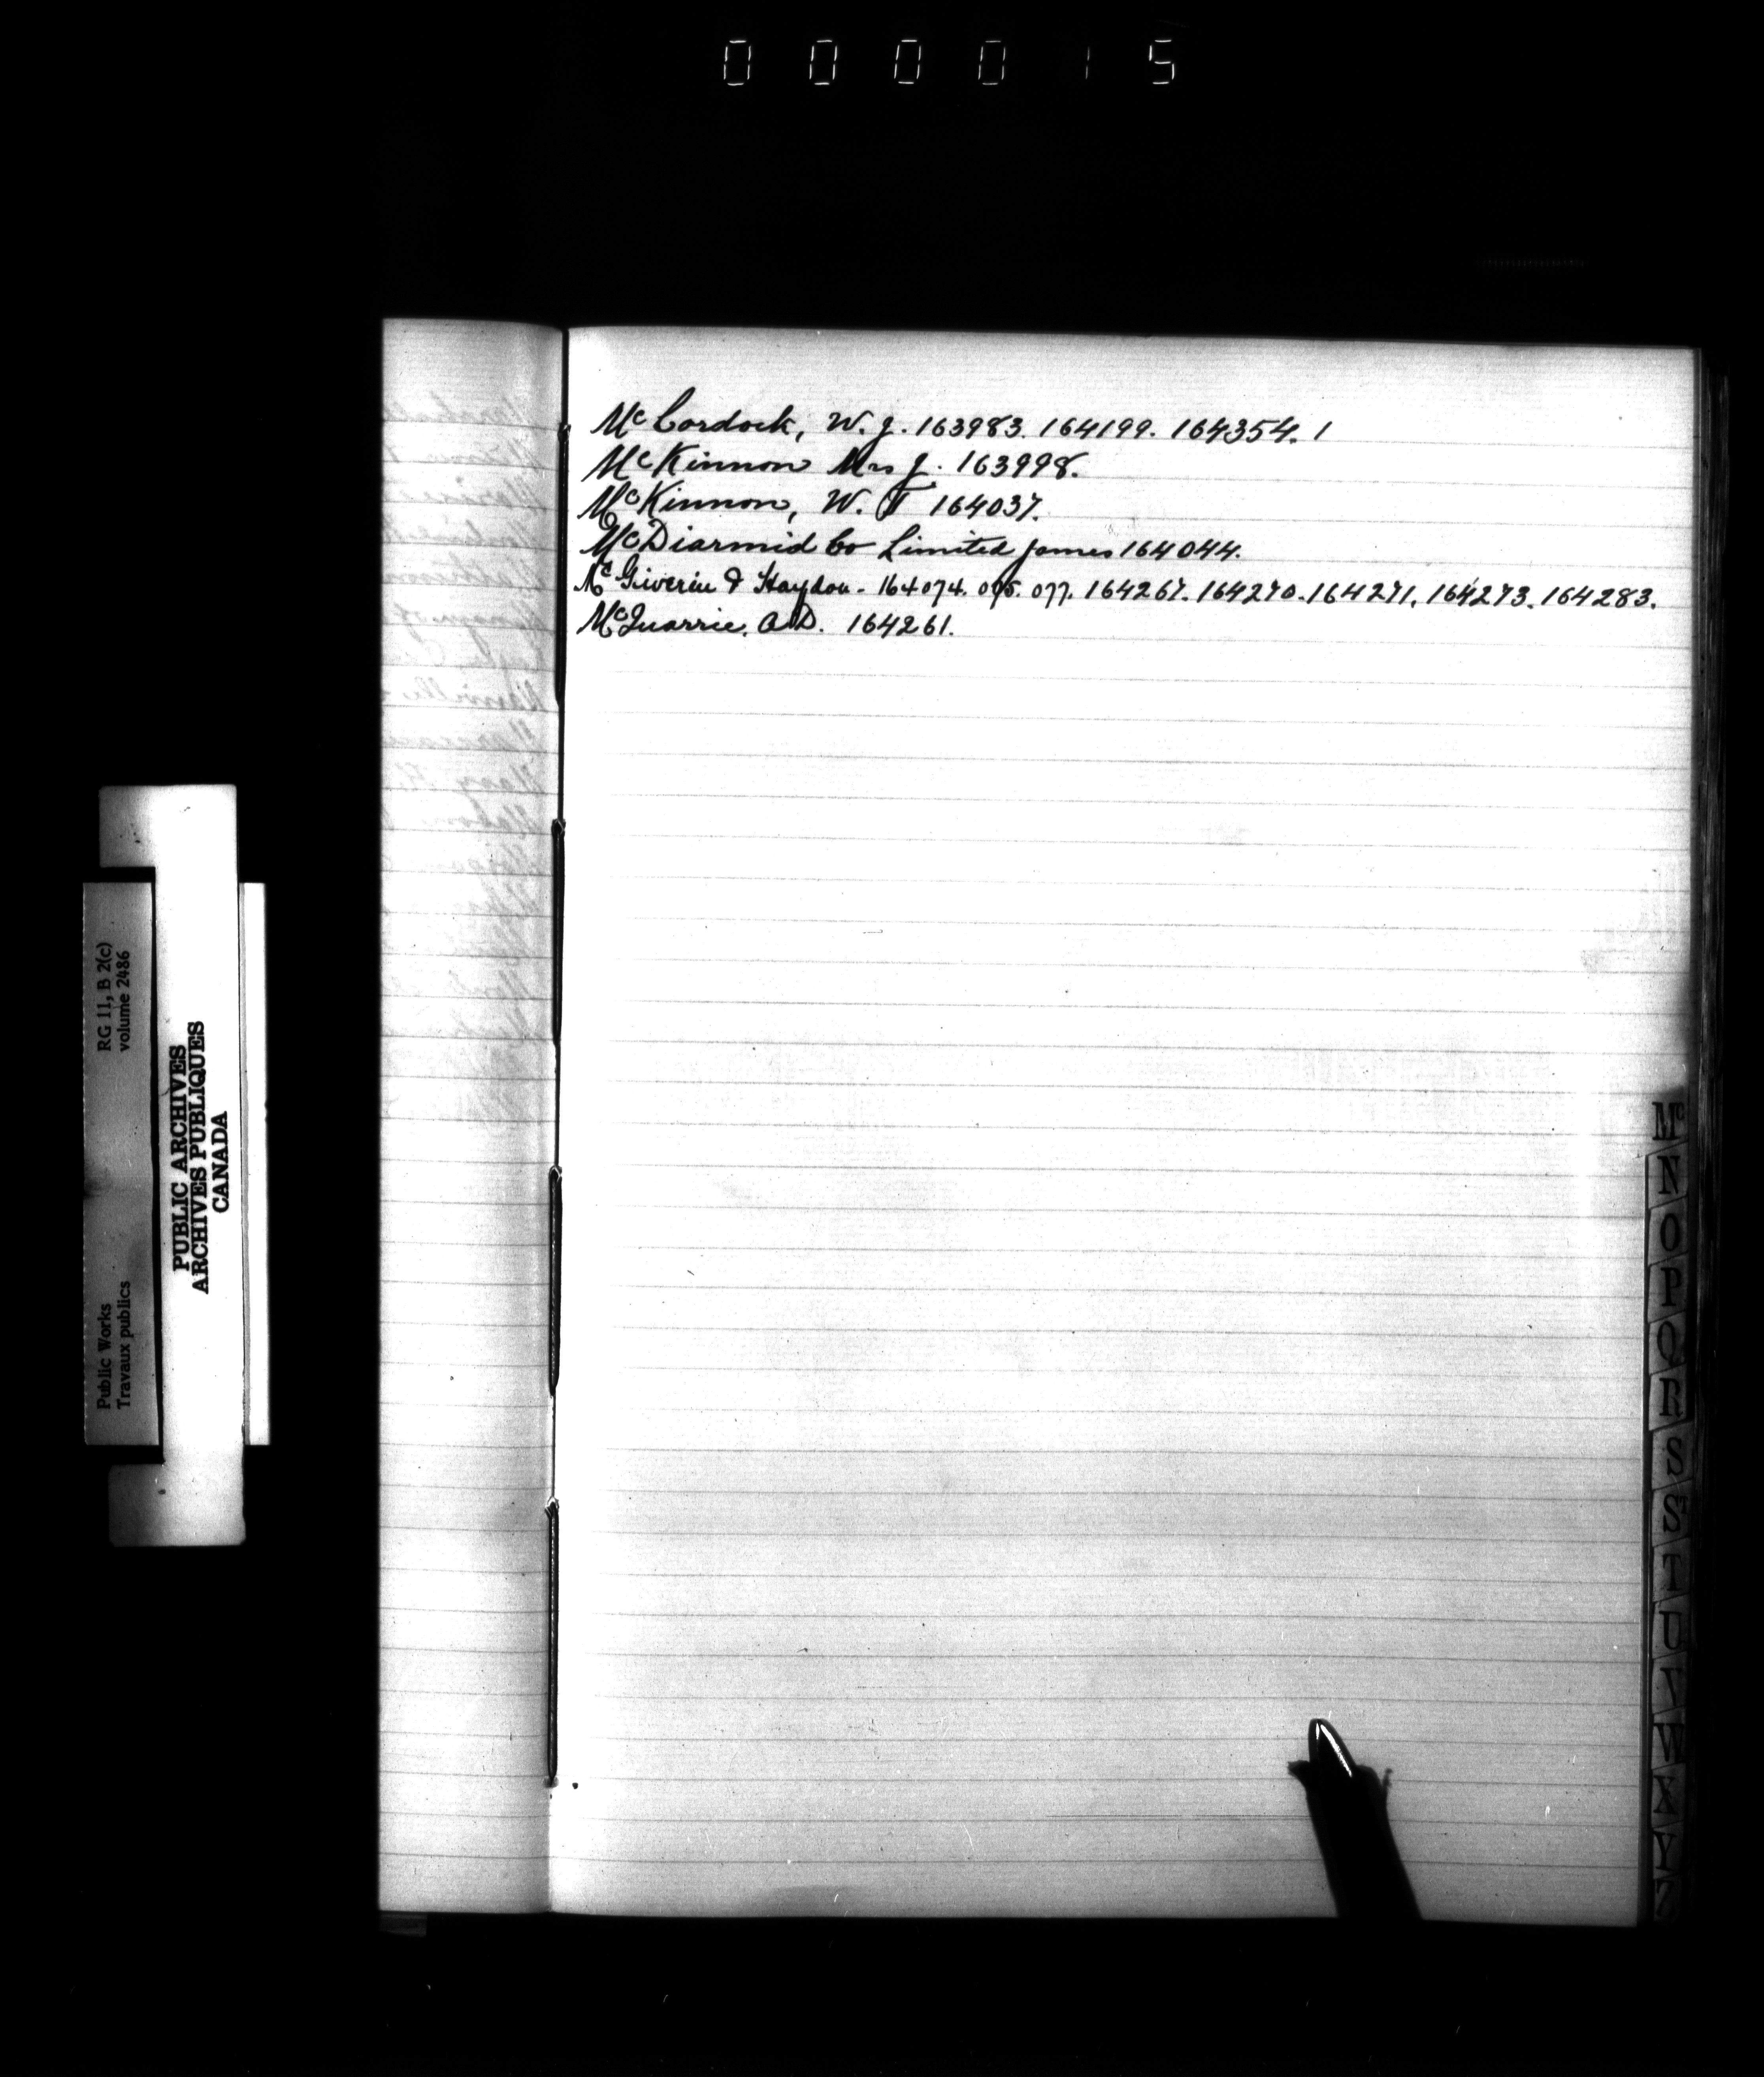 0 0 0 0 1 5
McCordock, W. J. 163983. 164199. 164354. 1
McKinnon Mrs J. 163998.
McKinnon, W. T 164037.
McDiarmid Co Limited James 164044.
McGiverin & Haydon - 164074. 075. 077. 164267. 164270. 164271. 164273. 164283.
McQuarrie, A.D. 164261.
RG 11, B 2(c)
volume 2486
Public Works
Travaux publics
PUBLIC ARCHIVES
ARCHIVES PUBLIQUES
CANADA
Mc
N
O
P
Q
R
S
S
T
U
V
W
X
Y
Z